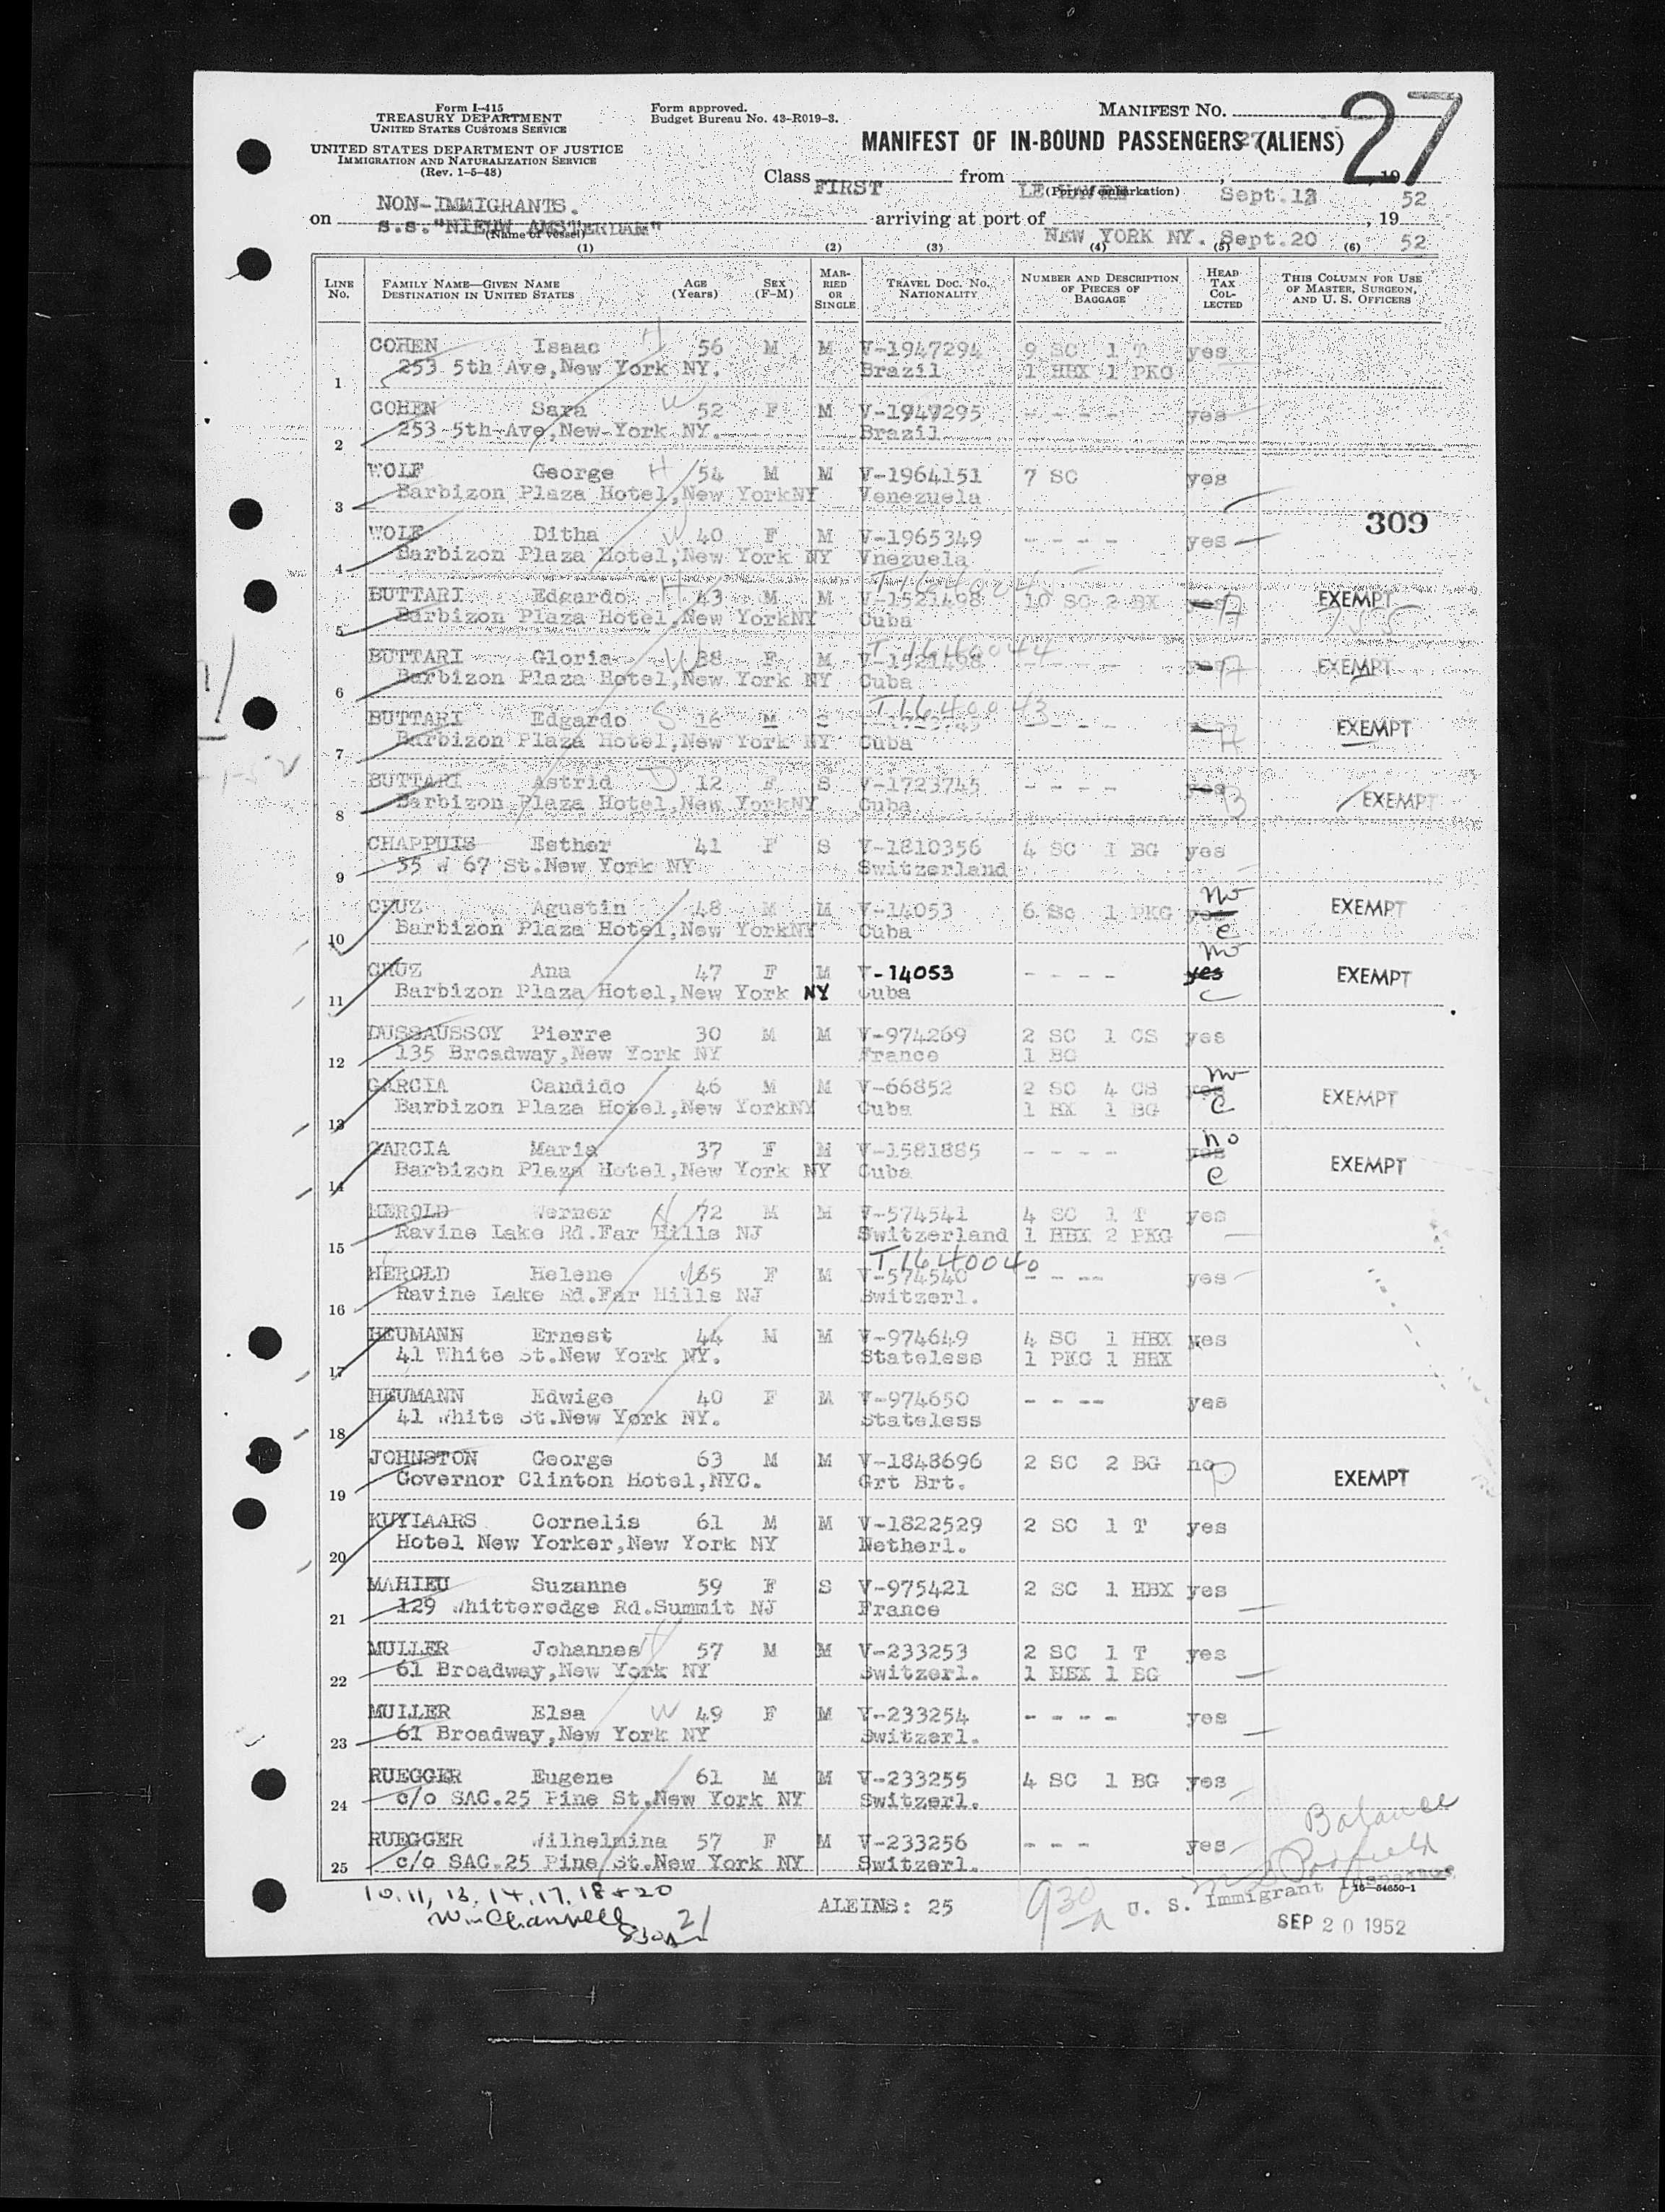 Form I-415
TREASURY DEPARTMENT
UNITED STATES CUSTOMS SERVICE
UNITED STATES DEPARTMENT OF JUSTICE
IMMIGRATION AND NATURALIZATION SERVICE
(Rev. 1-5-48)
Form approved.
Budget Bureau No. 43-R019-3.
MANIFEST NO. 27
MANIFEST OF IN-BOUND PASSENGERS (ALIENS)
Class FIRST from LE HAVRE, Sept.13, 19 52
(Port of embarkation)
NON-IMMIGRANTS.
on s.s."NIEUW AMSTERDAM" arriving at port of NEW YORK NY. Sept.20, 19 52
(Name of vessel)
(1) (2) (3) (4) (5) (6)
LINE No. FAMILY NAME—GIVEN NAME DESTINATION IN UNITED STATES AGE (Years) SEX (F-M) MARRIED OR SINGLE TRAVEL DOC. NO. NATIONALITY NUMBER AND DESCRIPTION OF PIECES OF BAGGAGE HEAD TAX COLLECTED THIS COLUMN FOR USE OF MASTER, SURGEON, AND U. S. OFFICERS
COHEN Isaac H 56 M M V-1947294 9 SC 1 T yes
1 253 5th Ave,New York NY. Brazil 1 HBX 1 PKG
COHEN Sara W 52 F M V-1947295 - - - - yes
2 253 5th-Ave,New-York NY. Brazil
WOLF George H 54 M M V-1964151 7 SC yes
3 Barbizon Plaza Hotel,New YorkNY Venezuela
309
WOLF Ditha W 40 F M V-1965349 - - - - yes
4 Barbizon Plaza Hotel,New York NY Vnezuela
BUTTARI Edgardo H 43 M M V-1521498 10 SC 2 BX yes A EXEMPT
5 Barbizon Plaza Hotel,New YorkNY Cuba
T-1640044
BUTTARI Gloria W 38 F M V-1521498 - - - - yes A EXEMPT
6 Barbizon Plaza Hotel,New York NY Cuba
T1640043
BUTTARI Edgardo S 16 M S - - - - A EXEMPT
7 Barbizon Plaza Hotel,New York NY Cuba
BUTTARI Astrid D 12 F S V-1723745 - - - - yes B EXEMPT
8 Barbizon Plaza Hotel,New YorkNY Cuba
CHAPPUIS Esther 41 F S V-1810356 4 SC 1 BG yes
9 35 W 67 St.New York NY Switzerland
CRUZ Agustin 48 M M V-14053 6 Sc 1 PKG yes no c EXEMPT
10 Barbizon Plaza Hotel,New YorkNY Cuba
CRUZ Ana 47 F M V-14053 - - - - yes no c EXEMPT
11 Barbizon Plaza Hotel,New York NY Cuba
DUSSAUSSOY Pierre 30 M M V-974269 2 SC 1 CS yes
12 135 Broadway,New York NY France 1 BG
GARCIA Candido 46 M M V-66852 2 SC 4 CS yes no c EXEMPT
13 Barbizon Plaza Hotel,New YorkNY Cuba 1 BX 1 BG
GARCIA Maria 37 F M V-1581885 - - - - yes no c EXEMPT
14 Barbizon Plaza Hotel,New York NY Cuba
HEROLD Werner H 72 M M V-574541 4 SC 1 T yes
15 Ravine Lake Rd.Far Hills NJ Switzerland 1 HBX 2 PKG
T1640040
HEROLD Helene W 65 F M V-574540 - - -- yes
16 Ravine Lake Rd.Far Hills NJ Switzerl.
HEUMANN Ernest 44 M M V-974649 4 SC 1 HBX yes
17 41 White St.New York NY. Stateless 1 PKG 1 HBX
HEUMANN Edwige 40 F M V-974650 - - -- yes
18 41 White St.New York NY. Stateless
JOHNSTON George 63 M M V-1848696 2 SC 2 BG no P EXEMPT
19 Governor Clinton Hotel,NYC. Grt Brt.
KUYLAARS Cornelis 61 M M V-1822529 2 SC 1 T yes
20 Hotel New Yorker,New York NY Netherl.
MAHIEU Suzanne 59 F S V-975421 2 SC 1 HBX yes
21 129 Whitteredge Rd.Summit NJ France
MULLER Johannes H 57 M M V-233253 2 SC 1 T yes
22 61 Broadway,New York NY Switzerl. 1 HBX 1 BG
MULLER Elsa W 49 F M V-233254 - - - - yes
23 61 Broadway,New York NY Switzerl.
RUEGGER Eugene 61 M M V-233255 4 SC 1 BG yes
24 c/o SAC.25 Pine St.New York NY Switzerl.
RUEGGER Wilhelmina 57 F M V-233256 - - - yes
25 c/o SAC.25 Pine St.New York NY Switzerl.
Balance
10, 11, 13, 14, 17, 18 + 20
21
ALEINS: 25
930 A
U. S. Immigrant Inspector
16—54650-1
SEP 20 1952